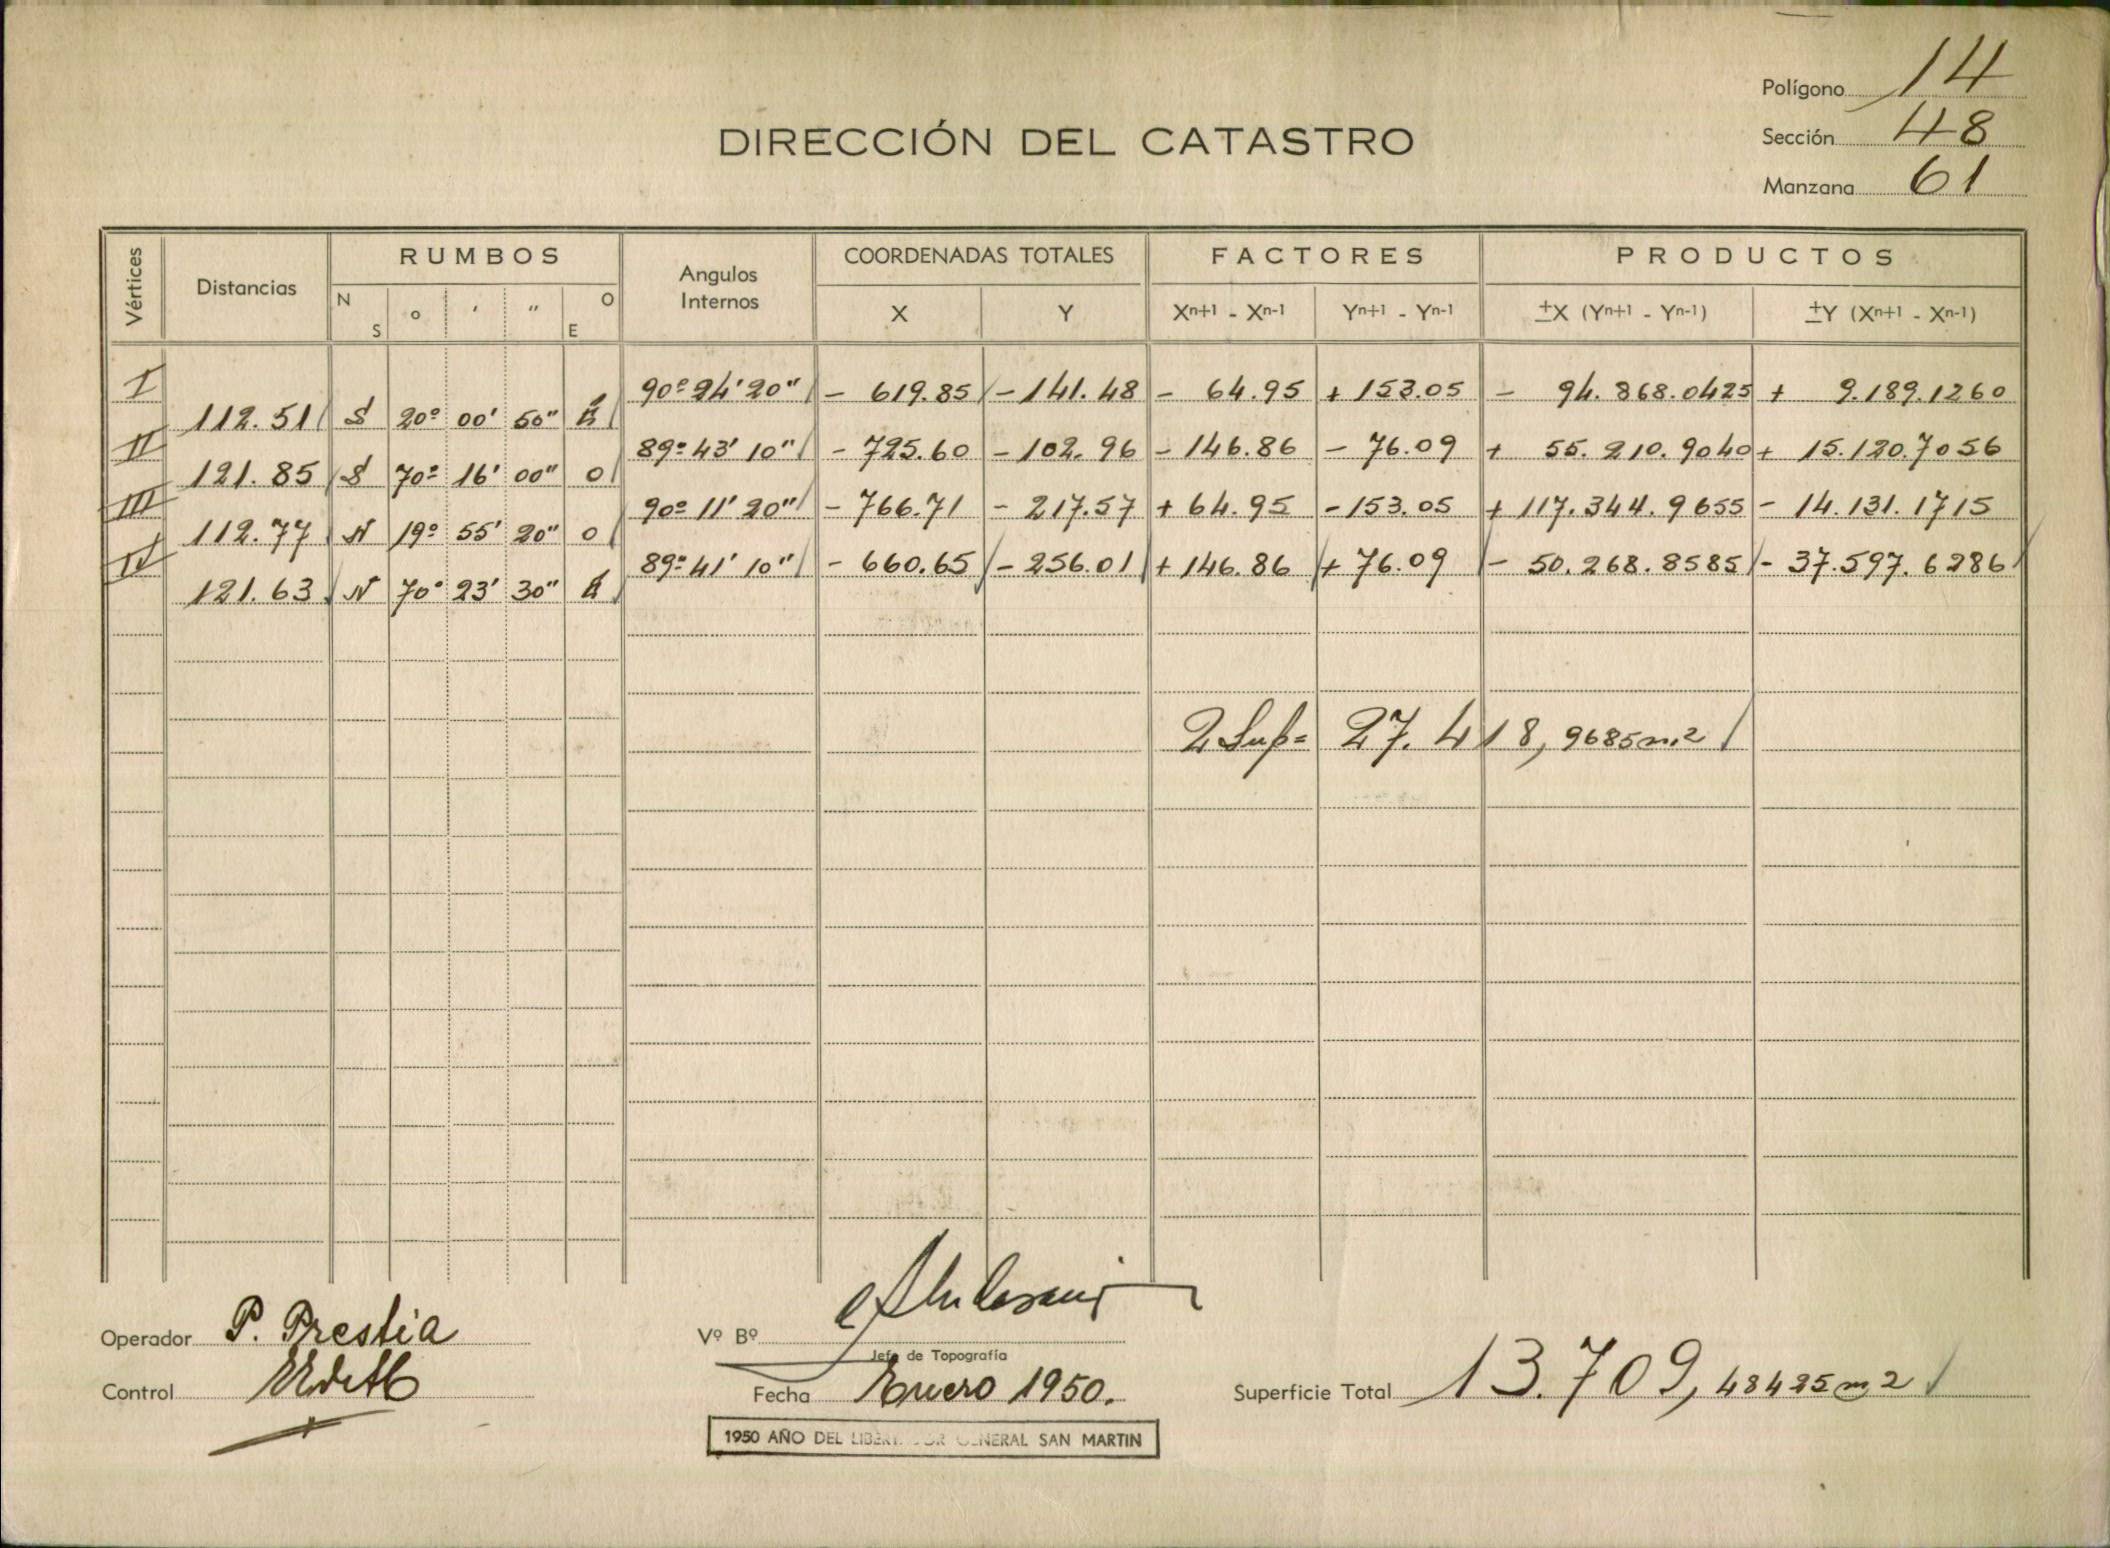 Polígono 14
DIRECCIÓN DEL CATASTRO
Sección 48
Manzana 61
Vértices Distancias RUMBOS Angulos Internos COORDENADAS TOTALES FACTORES PRODUCTOS
N S o ' " O E X Y Xn+1 - Xn-1 Yn+1 - Yn-1 ±X (Yn+1 - Yn-1) ±Y (Xn+1 - Xn-1)
I 90º 24' 20" - 619.85 - 141.48 - 64.95 + 153.05 - 94.868.0425 + 9.189.1260
112.51 S 20º 00' 50" E
II 89º 43' 10" - 725.60 - 102.96 - 146.86 - 76.09 + 55.210.9040 + 15.120.7056
121.85 S 70º 16' 00" O
III 90º 11' 20" - 766.71 - 217.57 + 64.95 - 153.05 + 117.344.9655 - 14.131.1715
112.77 N 19º 55' 20" O
IV 89º 41' 10" - 660.65 - 256.01 + 146.86 + 76.09 - 50.268.8585 - 37.597.6286
121.63 N 70º 23' 30" E
2 Sup= 27.418,9685 m.2
Operador P. Prestia
Control
Vº Bº
Jefe de Topografía
Fecha Enero 1950.
Superficie Total 13.709,48425 m2
1950 AÑO DEL LIBERTADOR GENERAL SAN MARTIN